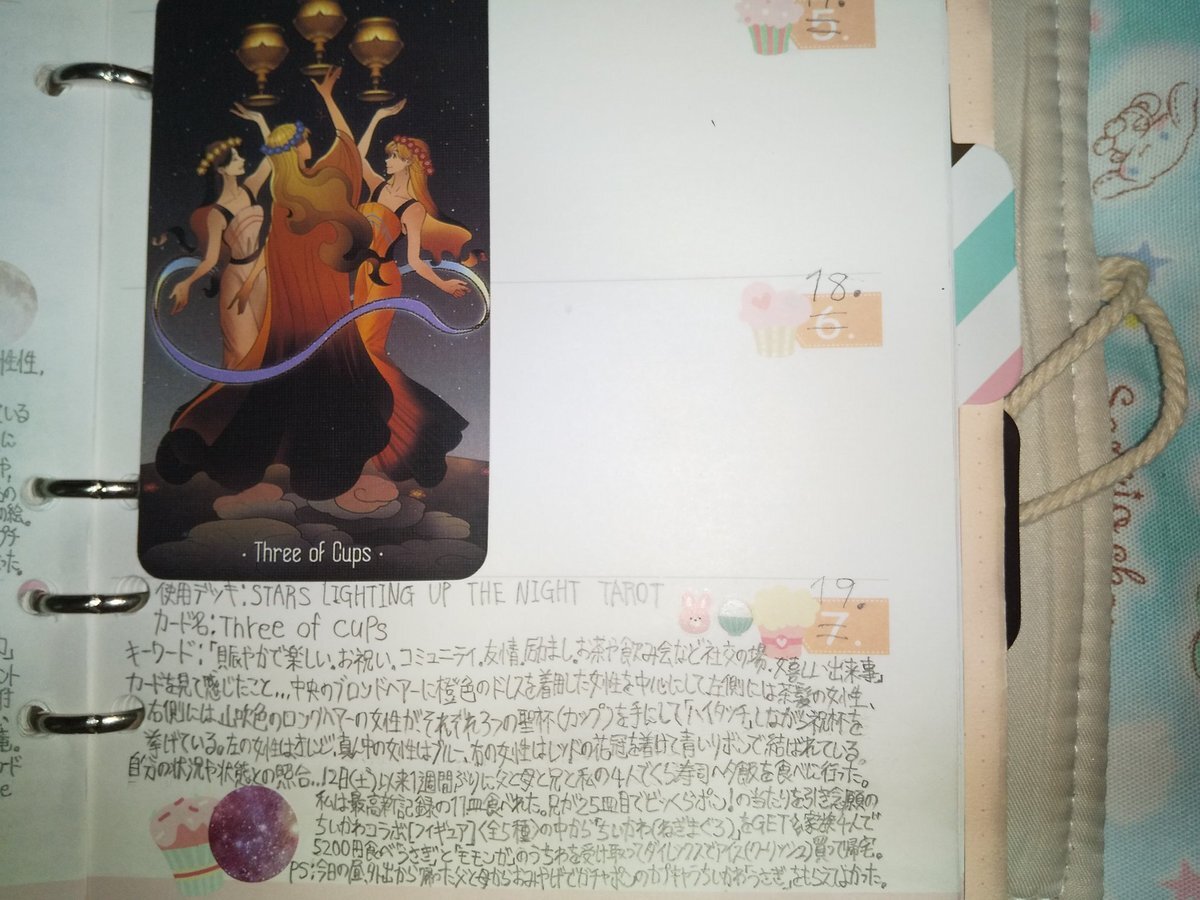 17.
5.
18.
6.
· Three of Cups ·
19.
7.
使用デッキ:STARS LIGHTING UP THE NIGHT TAROT
カード名:Three of cups
キーワード:「賑やかで楽しい。お祝い。コミュニティ。友情。励まし。お茶や飲み会など社交の場。嬉しい出来事」
カードを見て感じたこと...中央のブロンドヘアーに橙色のドレスを着用した女性を中心にして左側には茶髪の女性、
右側には山吹色のロングヘアーの女性が、それぞれ3つの聖杯(カップ)を手にして「ハイタッチ」しながら祝杯を
挙げている。左の女性はオレンジ、真ん中の女性はブルー、右の女性はレッドの花冠を着けて青いリボンで結ばれている。
自分の状況や状態との照合...12日(土)以来1週間ぶりに父と母と兄と私の4人でくら寿司へ夕飯を食べに行った。
私は最高新記録の11皿食べれた。兄が25皿目でビッくらポン!の当たりを引き念願の
ちいかわコラボ[フィギュア]<全5種>の中から「ちいかわ(ねぎまぐろ)」をGET 家族4人で
5200円食べ"うさぎ"と"モモンガ"のうちわを受け取ってダイレックスでアイス(クーリッシュ)買って帰宅。
PS:今日の昼、外出から帰った父と母からおみやげでガチャポンの"カプキャラちいかわうさぎ"をもらてよかった。
性性,
ている
に
や,
の
の絵。
プチ
た。
ント
付
ード